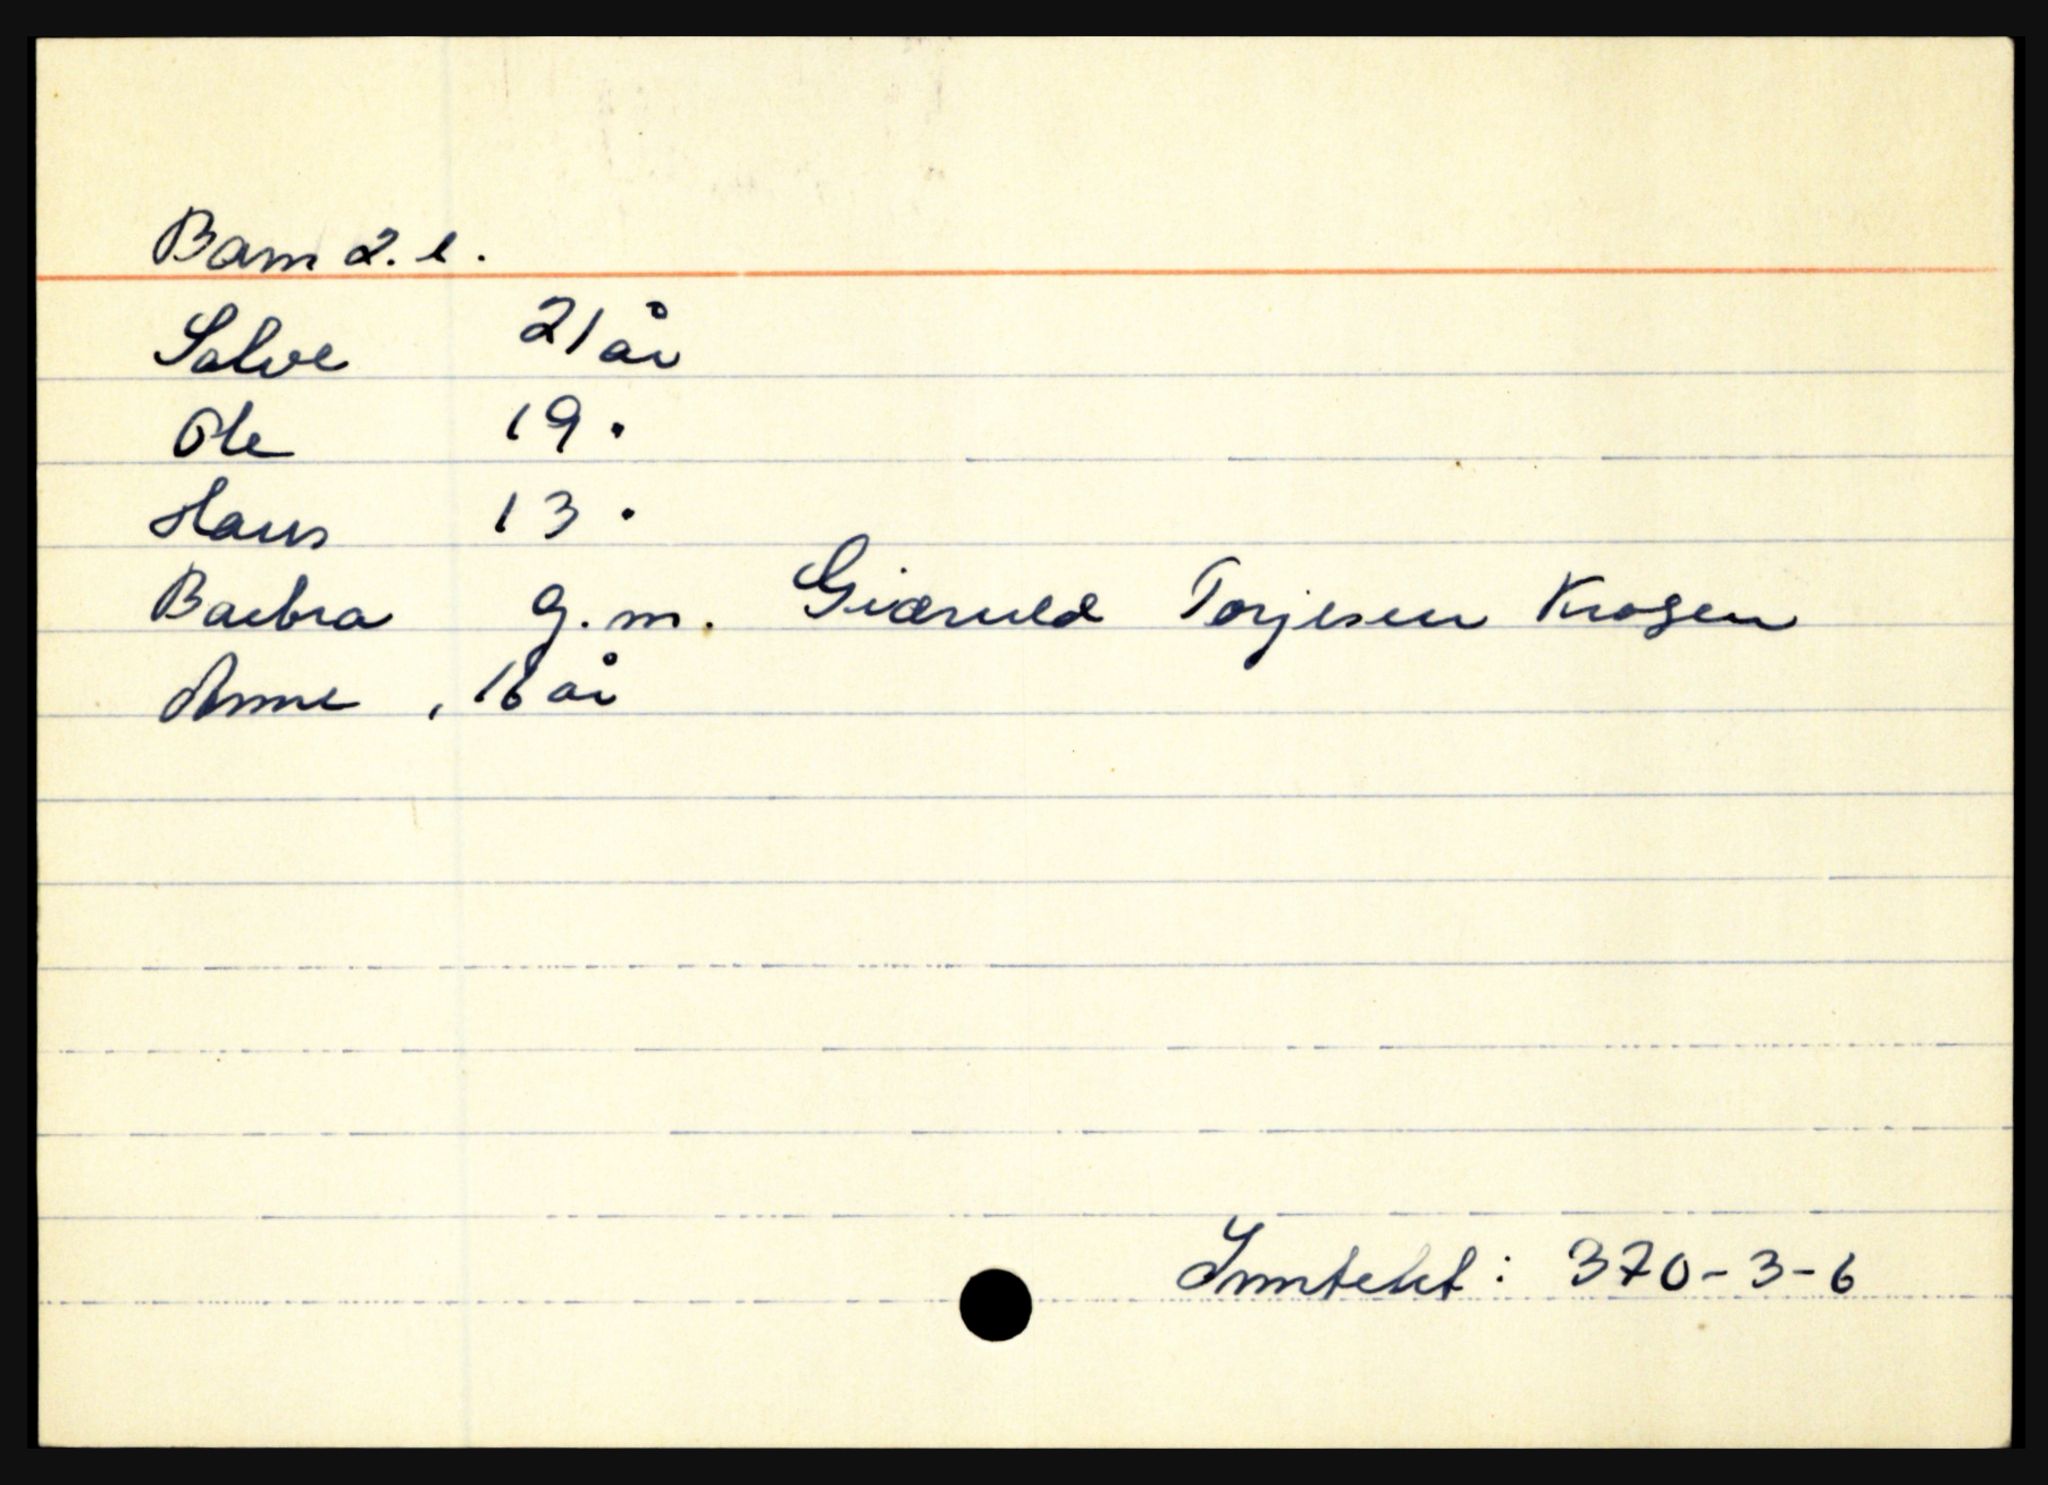 Barn 2. e.
Salve 21 år
Ole 19 "
Hans 13 "
Barbra g.m. Giæruld Torjesen Krogen
Anne, 16 år
Inntekt: 370-3-6